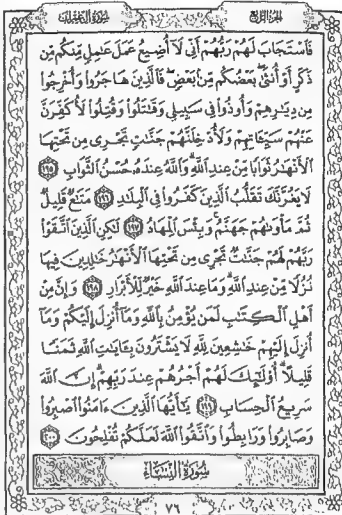 الجزء الرابع
سورة آل عمران
فَٱسْتَجَابَ لَهُمْ رَبُّهُمْ أَنِّى لَآ أُضِيعُ عَمَلَ عَٰمِلٍ مِّنكُم مِّن
ذَكَرٍ أَوْ أُنثَىٰ بَعْضُكُم مِّنۢ بَعْضٍ فَٱلَّذِينَ هَاجَرُوا۟ وَأُخْرِجُوا۟
مِن دِيَٰرِهِمْ وَأُوذُوا۟ فِى سَبِيلِى وَقَٰتَلُوا۟ وَقُتِلُوا۟ لَأُكَفِّرَنَّ
عَنْهُمْ سَيِّـَٔاتِهِمْ وَلَأُدْخِلَنَّهُمْ جَنَّٰتٍ تَجْرِى مِن تَحْتِهَا
ٱلْأَنْهَٰرُ ثَوَابًا مِّنْ عِندِ ٱللَّهِ وَٱللَّهُ عِندَهُۥ حُسْنُ ٱلثَّوَابِ ١٩٥
لَا يَغُرَّنَّكَ تَقَلُّبُ ٱلَّذِينَ كَفَرُوا۟ فِى ٱلْبِلَٰدِ ١٩٦ مَتَٰعٌ قَلِيلٌ
ثُمَّ مَأْوَىٰهُمْ جَهَنَّمُ وَبِئْسَ ٱلْمِهَادُ ١٩٧ لَٰكِنِ ٱلَّذِينَ ٱتَّقَوْا۟
رَبَّهُمْ لَهُمْ جَنَّٰتٌ تَجْرِى مِن تَحْتِهَا ٱلْأَنْهَٰرُ خَٰلِدِينَ فِيهَا
نُزُلًا مِّنْ عِندِ ٱللَّهِ وَمَا عِندَ ٱللَّهِ خَيْرٌ لِّلْأَبْرَارِ ١٩٨ وَإِنَّ مِنْ
أَهْلِ ٱلْكِتَٰبِ لَمَن يُؤْمِنُ بِٱللَّهِ وَمَآ أُنزِلَ إِلَيْكُمْ وَمَآ
أُنزِلَ إِلَيْهِمْ خَٰشِعِينَ لِلَّهِ لَا يَشْتَرُونَ بِـَٔايَٰتِ ٱللَّهِ ثَمَنًا
قَلِيلًا أُو۟لَٰٓئِكَ لَهُمْ أَجْرُهُمْ عِندَ رَبِّهِمْ إِنَّ ٱللَّهَ
سَرِيعُ ٱلْحِسَابِ ١٩٩ يَٰٓأَيُّهَا ٱلَّذِينَ ءَامَنُوا۟ ٱصْبِرُوا۟
وَصَابِرُوا۟ وَرَابِطُوا۟ وَٱتَّقُوا۟ ٱللَّهَ لَعَلَّكُمْ تُفْلِحُونَ ٢٠٠
سُورَةُ النِّسَاءِ
٧٦